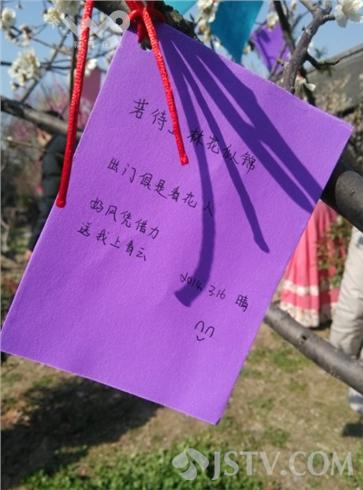 若待上林花似锦
出门俱是看花人
好风凭借力
送我上青云
2014.3.16 晴
JSTV.COM